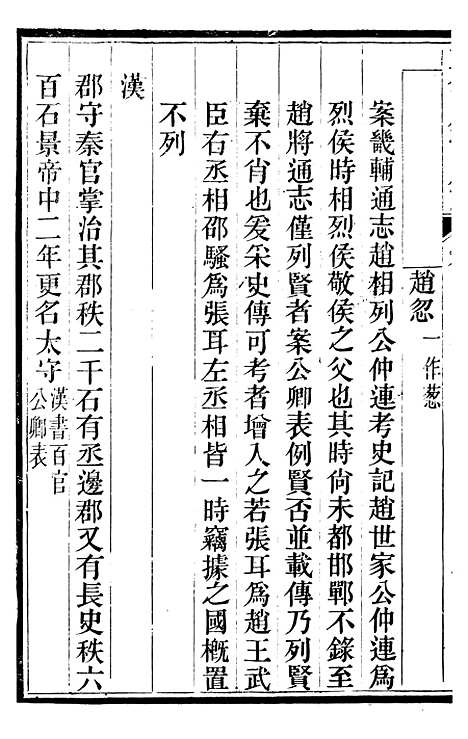 趙忽一作葱
案畿輔通志趙相列公仲連考史記趙世家公仲連爲
烈侯時相烈侯敬侯之父也其時尙未都邯鄲不錄至
趙將通志僅列賢者案公卿表例賢否並載傳乃列賢
棄不肖也爰采史傳可考者增入之若張耳爲趙王武
臣右丞相邵騷爲張耳左丞相皆一時竊據之國槪置
不列
漢
郡守秦官掌治其郡秩二千石有丞邊郡又有長史秩六
百石景帝中二年更名太守漢書百官公卿表